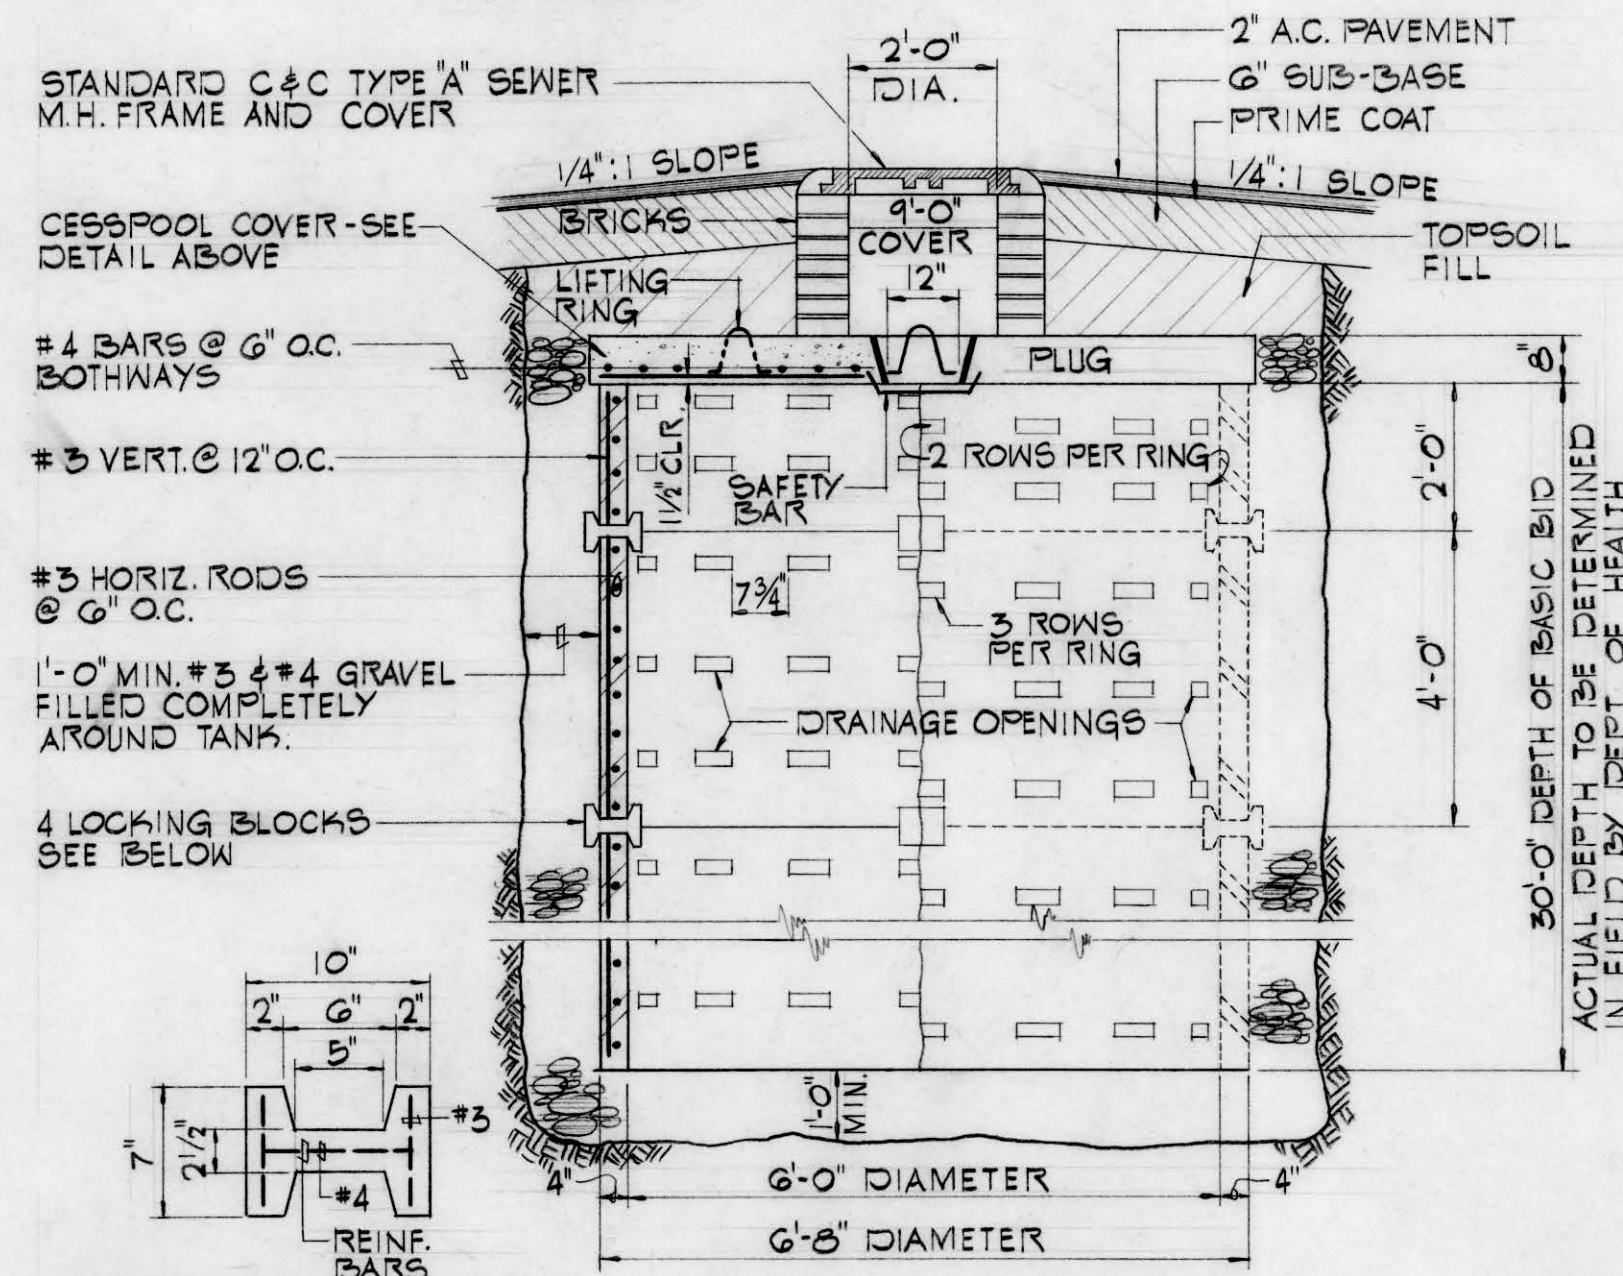 2'-0"
DIA.
2" A.C. PAVEMENT
6" SUB-BASE
PRIME COAT
STANDARD C & C TYPE "A" SEWER
M.H. FRAME AND COVER
1/4" : 1 SLOPE
1/4" : 1 SLOPE
CESSPOOL COVER - SEE
DETAIL ABOVE
BRICKS
9'-0"
COVER
12"
TOPSOIL
FILL
LIFTING
RING
#4 BARS @ 6" O.C.
BOTHWAYS
PLUG
8"
#3 VERT. @ 12" O.C.
1 1/2" CLR.
SAFETY
BAR
2 ROWS PER RING
2'-0"
#3 HORIZ. RODS
@ 6" O.C.
7 3/4"
3 ROWS
PER RING
4'-0"
1'-0" MIN. #3 & #4 GRAVEL
FILLED COMPLETELY
AROUND TANK.
DRAINAGE OPENINGS
4 LOCKING BLOCKS
SEE BELOW
30'-0" DEPTH OF BASIC BID
ACTUAL DEPTH TO BE DETERMINED
IN FIELD BY DEPT. OF HEALTH
10"
2"
6"
2"
5"
7"
2 1/2"
#3
#4
REINF.
BARS
1'-0"
MIN.
4"
6'-0" DIAMETER
4"
6'-8" DIAMETER